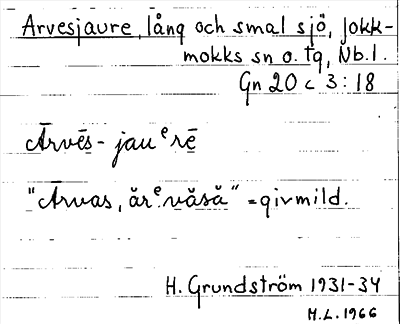 Arvesjaure, lång och smal sjö, Jokk-
mokks sn o. tg, Nb.l.
Gn 20 c 3:18
Ārvēs-jauᵉrē
"Ārvas, ărᵉvăsă" = givmild.
H. Grundström 1931-34
H.L. 1966